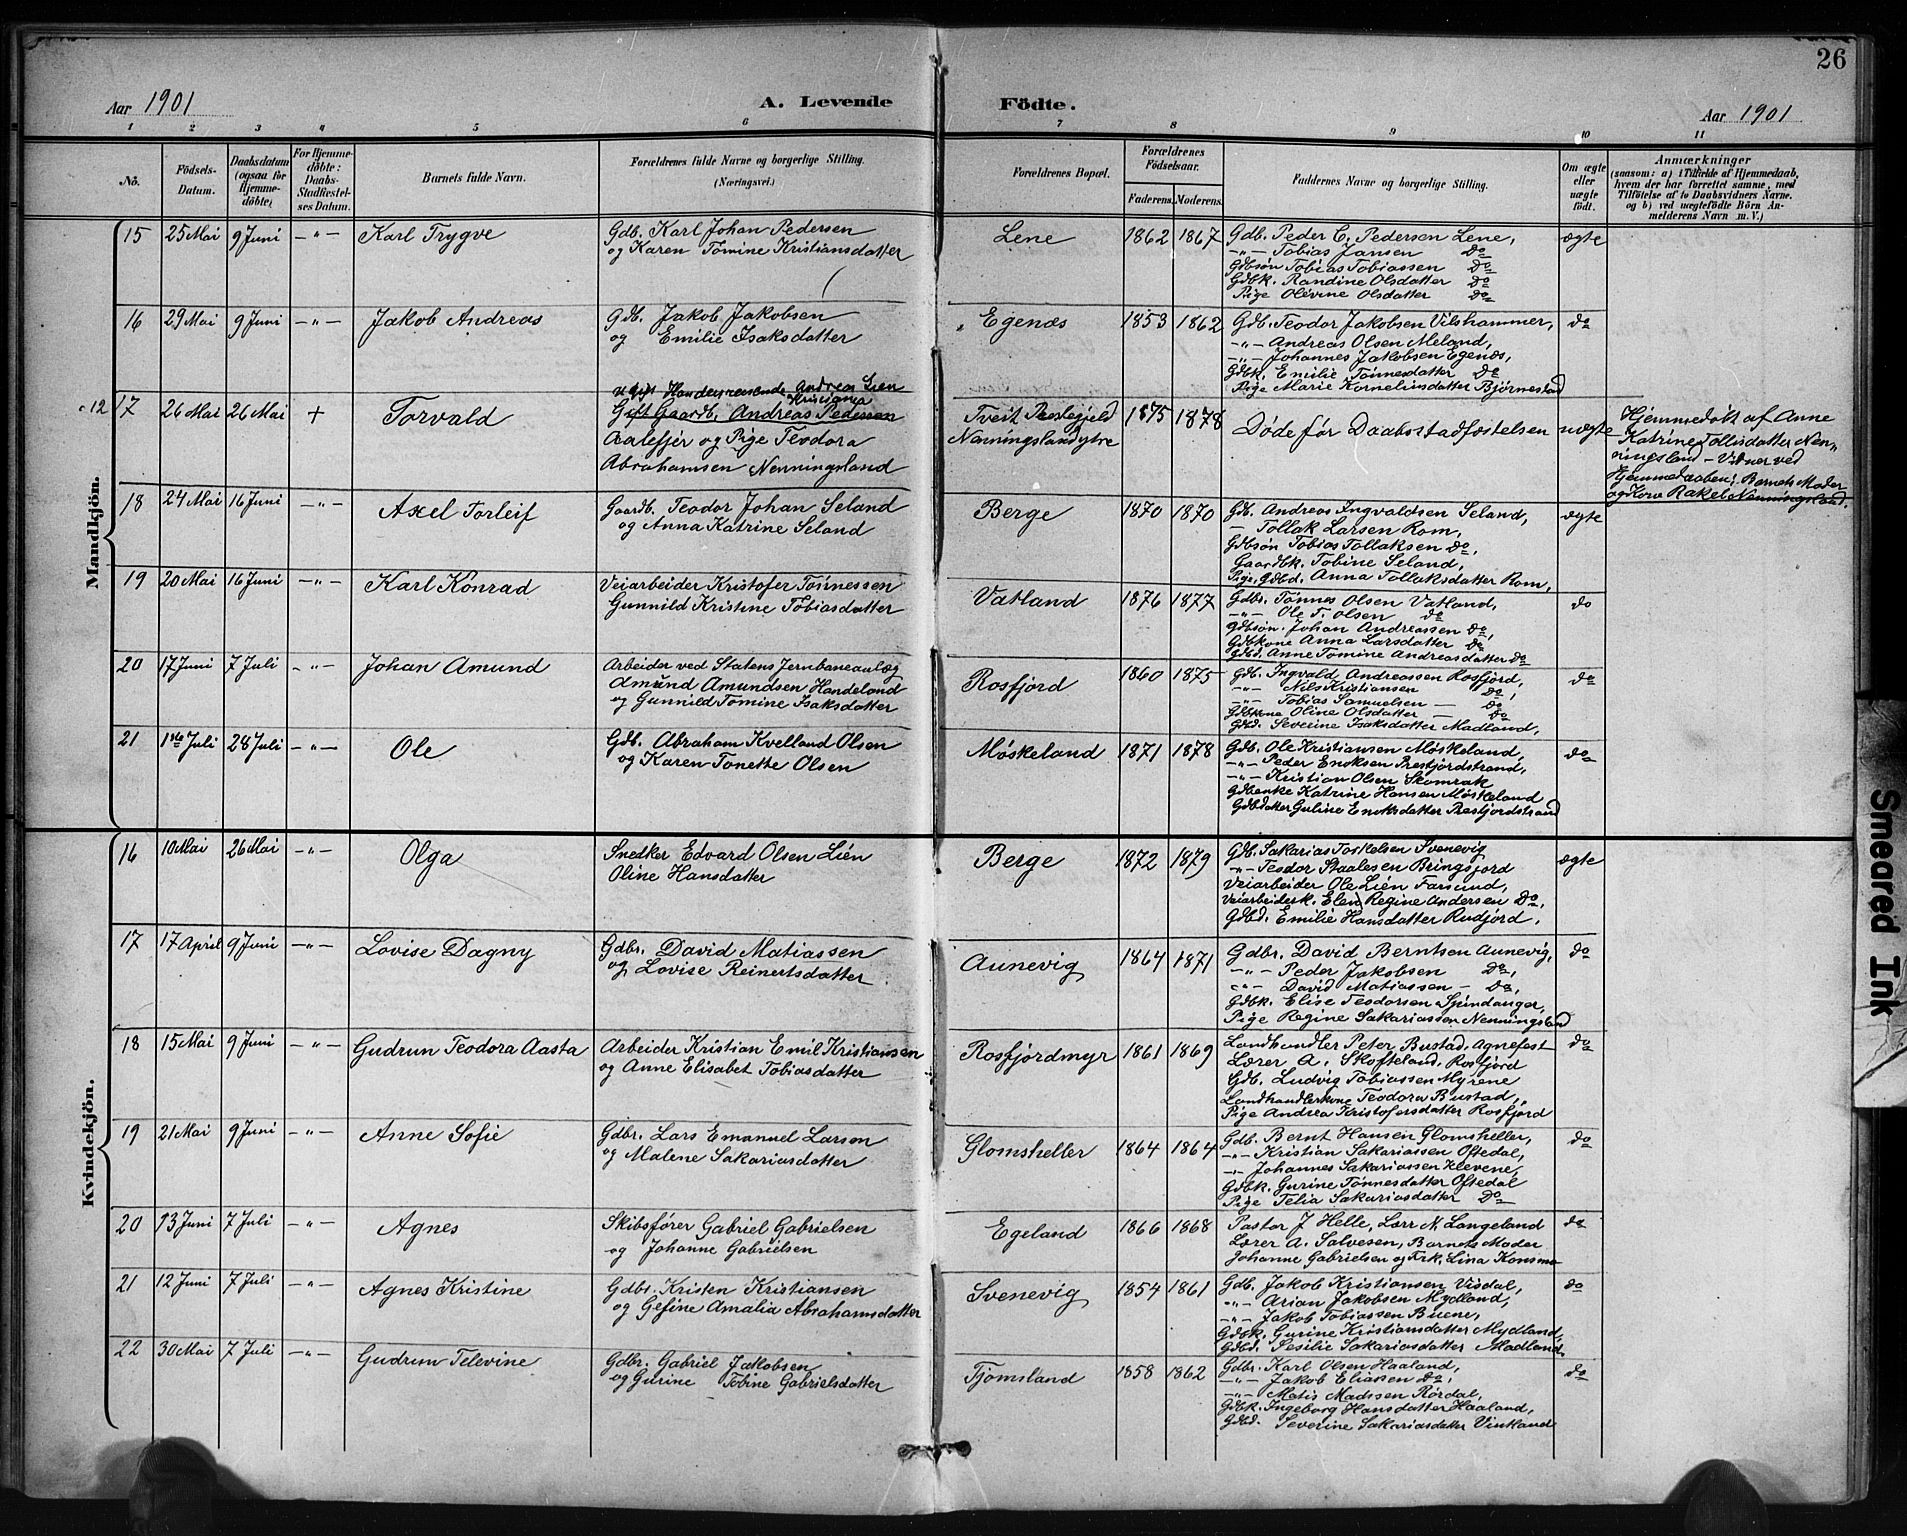 26
Aar 1901
A. Levende Födte.
Aar 1901
1 2 3 4 5 6 7 8 9 10 11
No.
Födsels-Datum.
Daabsdatum (ogsaa for Hjemmedöbte)
For Hjemmedöbte: Daabs-Stadfæstelses Datum.
Barnets fulde Navn.
Forældrenes fulde Navne og borgerlige Stilling.
(Næringsvei.)
Forældrenes Bopæl.
Forældrenes Födselsaar.
Faderens. Moderens.
Faddernes Navne og borgerlige Stilling.
Om ægte eller uægte födt.
Anmærkninger
(saasom: a) i Tilfælde af Hjemmedaab,
hvem der har forrettet samme, med
Tilföielse af to Daabsvidners Navne.
og b) ved uægtefödte Börn An-
melderens Navn m. V.)
Mandkjön.
15 25 Mai 9 Juni -"- Karl Trygve
Gdb. Karl Johan Pedersen
og Karen Tomine Kristiansdatter
Lene 1862 1867
Gdb. Peder C. Pedersen Lene,
-"- Tobias Jansen do
Gdbsøn Tobias Tobiassen do
Gdbk. Randine Olsdatter do
Pige Olevine Olsdatter do
ægte
16 29 Mai 9 Juni -"- Jakob Andreas
Gdb. Jakob Jakobsen
og Emilie Isaksdatter
Egenæs 1853 1862
Gdb. Teodor Jakobsen Vilshammer,
-"- Andreas Olsen Meland,
-"- Johannes Jakobsen Egenæs,
Gdbk. Emilie Tønnesdatter do
Pige Marie Korneliusdatter Bjørnestad
do
12 17 26 Mai 26 Mai + Torvald
ugift Handelsreisende Andreas Lien
Kristiania
Gift Gaardb. Andreas Pedersen
Aalefjær og Pige Teodora
Abrahamsen Nenningsland
Tveit Prestegjeld
Nenningsland ytre
1875 1878
Døde før Daabsstadfæstelsen
uægte
Hjemmedøbt af Anne
Katrine Tollisdatter Nen-
ningsland - Vidner ved
Hjemmedaaben: Barnets Moder
og Kone Rakel Nenningsland.
18 24 Mai 16 Juni -"- Axel Torleif
Gaardb. Teodor Johan Seland
og Anna Katrine Seland
Berge 1870 1870
Gdb. Andreas Ingvaldsen Seland,
- Tollak Larsen Rom,
Gdbsøn Tobias Tollaksen do,
Gaardbk. Tobine Seland,
Pige, Gdbd. Anna Tollaksdatter Rom,
ægte
19 20 Mai 16 Juni -"- Karl Konrad
Veiarbeider Kristofer Tønnessen
Gunnild Kristine Tobiasdatter
Vatland 1876 1877
Gdbr. Tønnes Olsen Vatland,
-"- Ole T. Olsen do
Gdbsøn. Johan Andreassen do,
Gdbkone Anna Larsdatter do
Gdbd. Anne Tomine Andreasdatter do
do
20 17 Juni 7 Juli -"- Johan Amund
Arbeider ved Statens Jernbaneanlæg
Amund Amundsen Handeland
og Gunnild Tomine Isaksdatter
Rosfjord 1860 1875
Gdb. Ingvald Andreassen Rosfjord,
-"- Nils Kristiansen do,
-"- Tobias Samuelsen - do
Gdbkone Oline Olsdatter - do
Gdbd. Severine Isaksdatter Madland,
do
21 1ste Juli 28 Juli -"- Ole
Gdb. Abraham Kvelland Olsen
og Karen Tonette Olsen
Møskeland 1871 1878
Gdb. Ole Kristiansen Møskeland,
-"- Peder Enoksen Prestjordstrand,
-"- Kristian Olsen Skomrak
Gdbenke Katrine Hansen Møskeland
Gdbdatter Guline Enoksdatter Prestjordstrand
do
Kvindekjön.
16 10 Mai 26 Mai -"- Olga
Snedker Edvard Olsen Lien
Oline Hansdatter
Berge 1872 1879
Gdb. Sakarias Toskelsen Svenevig
-"- Teodor Staalesen Bringsjord
Veiarbeider Ole Lien Farsund,
Veiarbeidersk. Elen Regine Andersen do,
Gdbd. Emilie Hansdatter Rudjord.
ægte
17 17 April 9 Juni -"- Lovise Dagny
Gdbr. David Matiassen
og Lovise Reinertsdatter
Aunevig 1864 1871
Gdbr. David Berntsen Aunevig,
-"- Peder Jakobsen do,
-"- David Matiassen - do,
Gdbk. Elise Teodorsen Spindanger,
Pige Regine Sakariassen Nenningsland
do
18 15 Mai 9 Juni -"- Gudrun Teodora Aasta
Arbeider Kristian Emil Kristiansen
og Anne Elisabet Tobiasdatter
Rosfjordmyr 1861 1869
Landhandler Peter Bustad, Agnefest
Lærer A. Skofteland, Rosfjord
Gdb. Ludvig Tobiassen Myrene
Landhandlerkone Teodora Bustad,
Pige Andrea Kristofersdatter Rosfjord
do
19 21 Mai 9 Juni -"- Anne Sofie
Gdbr. Lars Emanuel Larsen
og Malene Sakariasdatter
Glomsheller 1864 1864
Gdb. Bernt Hansen Glomsheller,
-"- Kristian Sakariassen Oftedal,
-"- Johannes Sakariassen Klevene,
Gdbk. Gurine Tønnesdatter Oftedal
Pige Telia Sakariasdatter do
do
20 13 Juni 7 Juli -"- Agnes
Skibsfører Gabriel Gabrielsen
og Johanne Gabrielsen
Egeland 1866 1868
Pastor J Helle, Lærr N. Langeland
Lærer A. Salvesen, Barnets Moder
Johanne Gabrielsen og Frk. Lina Konsmo
do
21 12 Juni 7 Juli -"- Agnes Kristine
Gdbr. Kristen Kristiansen
og Gesine Amalia Abrahamsdatter
Svenevig 1854 1861
Gdb. Jakob Kristiansen Visdal,
-"- Arian Jakobsen Mydland,
-"- Jakob Tobiassen Buene,
Gdbk. Gurine Kristiansdatter Mydland,
Gdbd. Sesilie Sakariasdatter Madland.
do
22 30 Mai 7 Juli -"- Gudrun Televine
Gdbr. Gabriel Jakobsen
og Gurine Tobine Gabrielsdatter
Tjømsland 1858 1862
Gdbr. Karl Olsen Haaland,
-"- Jakob Eliasen do,
-"- Matis Madssen Rørdal,
Gdbk. Ingeborg Hansdatter Haaland,
Gdbd. Severine Sakariasdatter Vintland
do
Smeared Ink